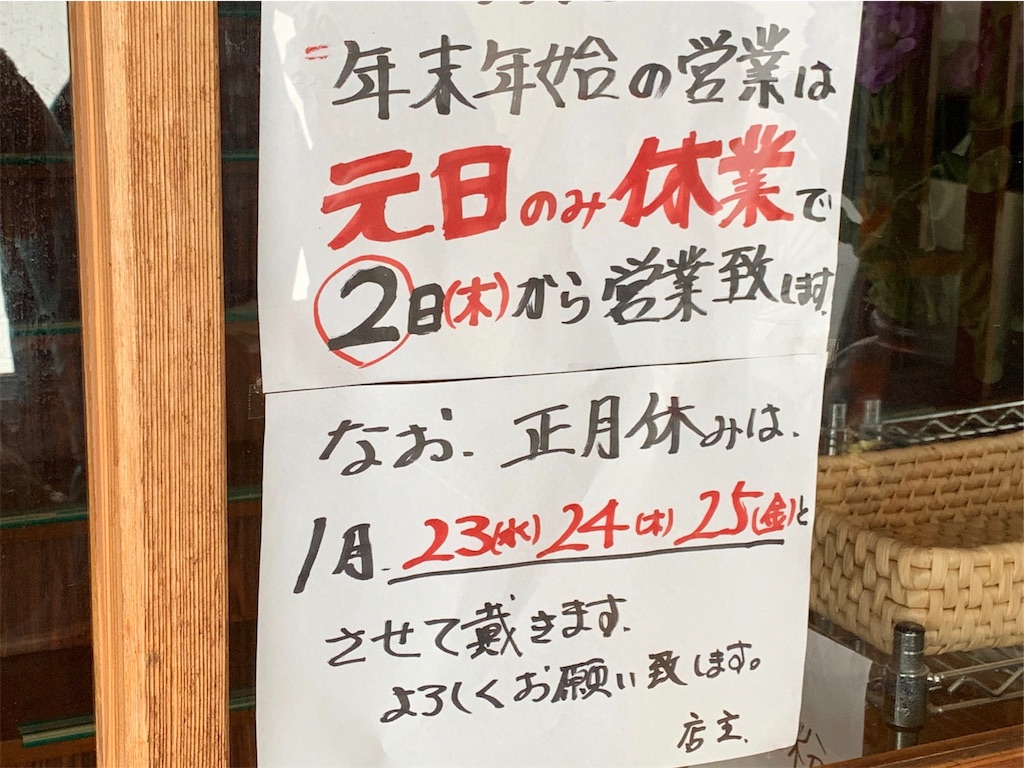 年末年始の営業は
元日のみ休業で
2日(木)から営業致します
なお、正月休みは、
1月 23(水)24(木)25(金)と
させて戴きます、
よろしくお願い致します。
店主、